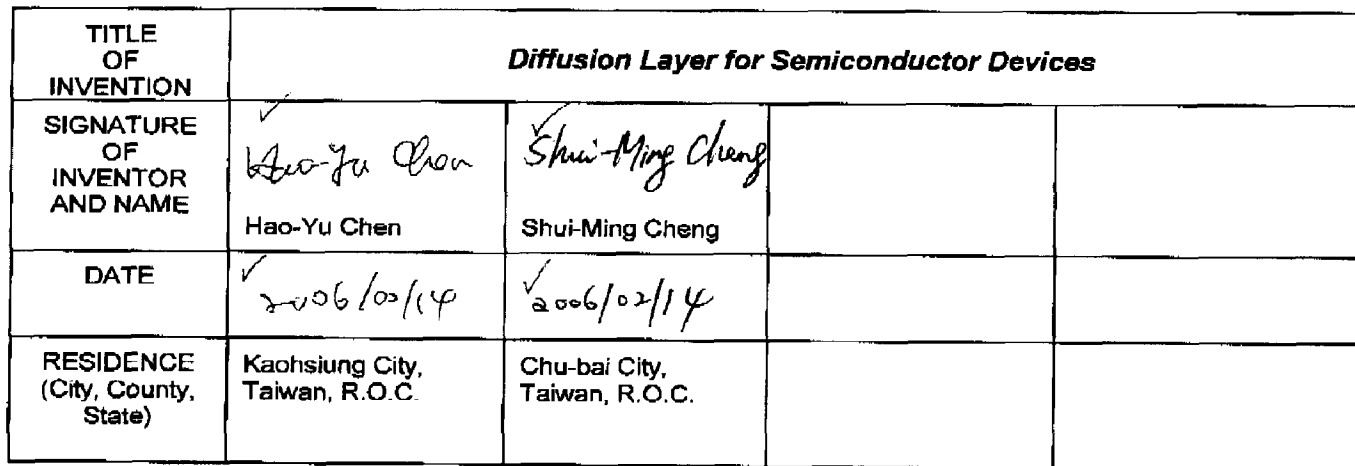 TITLE
OF
INVENTION
Diffusion Layer for Semiconductor Devices
SIGNATURE
OF
INVENTOR
AND NAME
Hao-Yu Chen
Shui-Ming Cheng
Hao-Yu Chen
Shui-Ming Cheng
DATE
2006/02/14
RESIDENCE
(City, County,
State)
Kaohsiung City,
Taiwan, R.O.C.
Chu-bai City,
Taiwan, R.O.C.